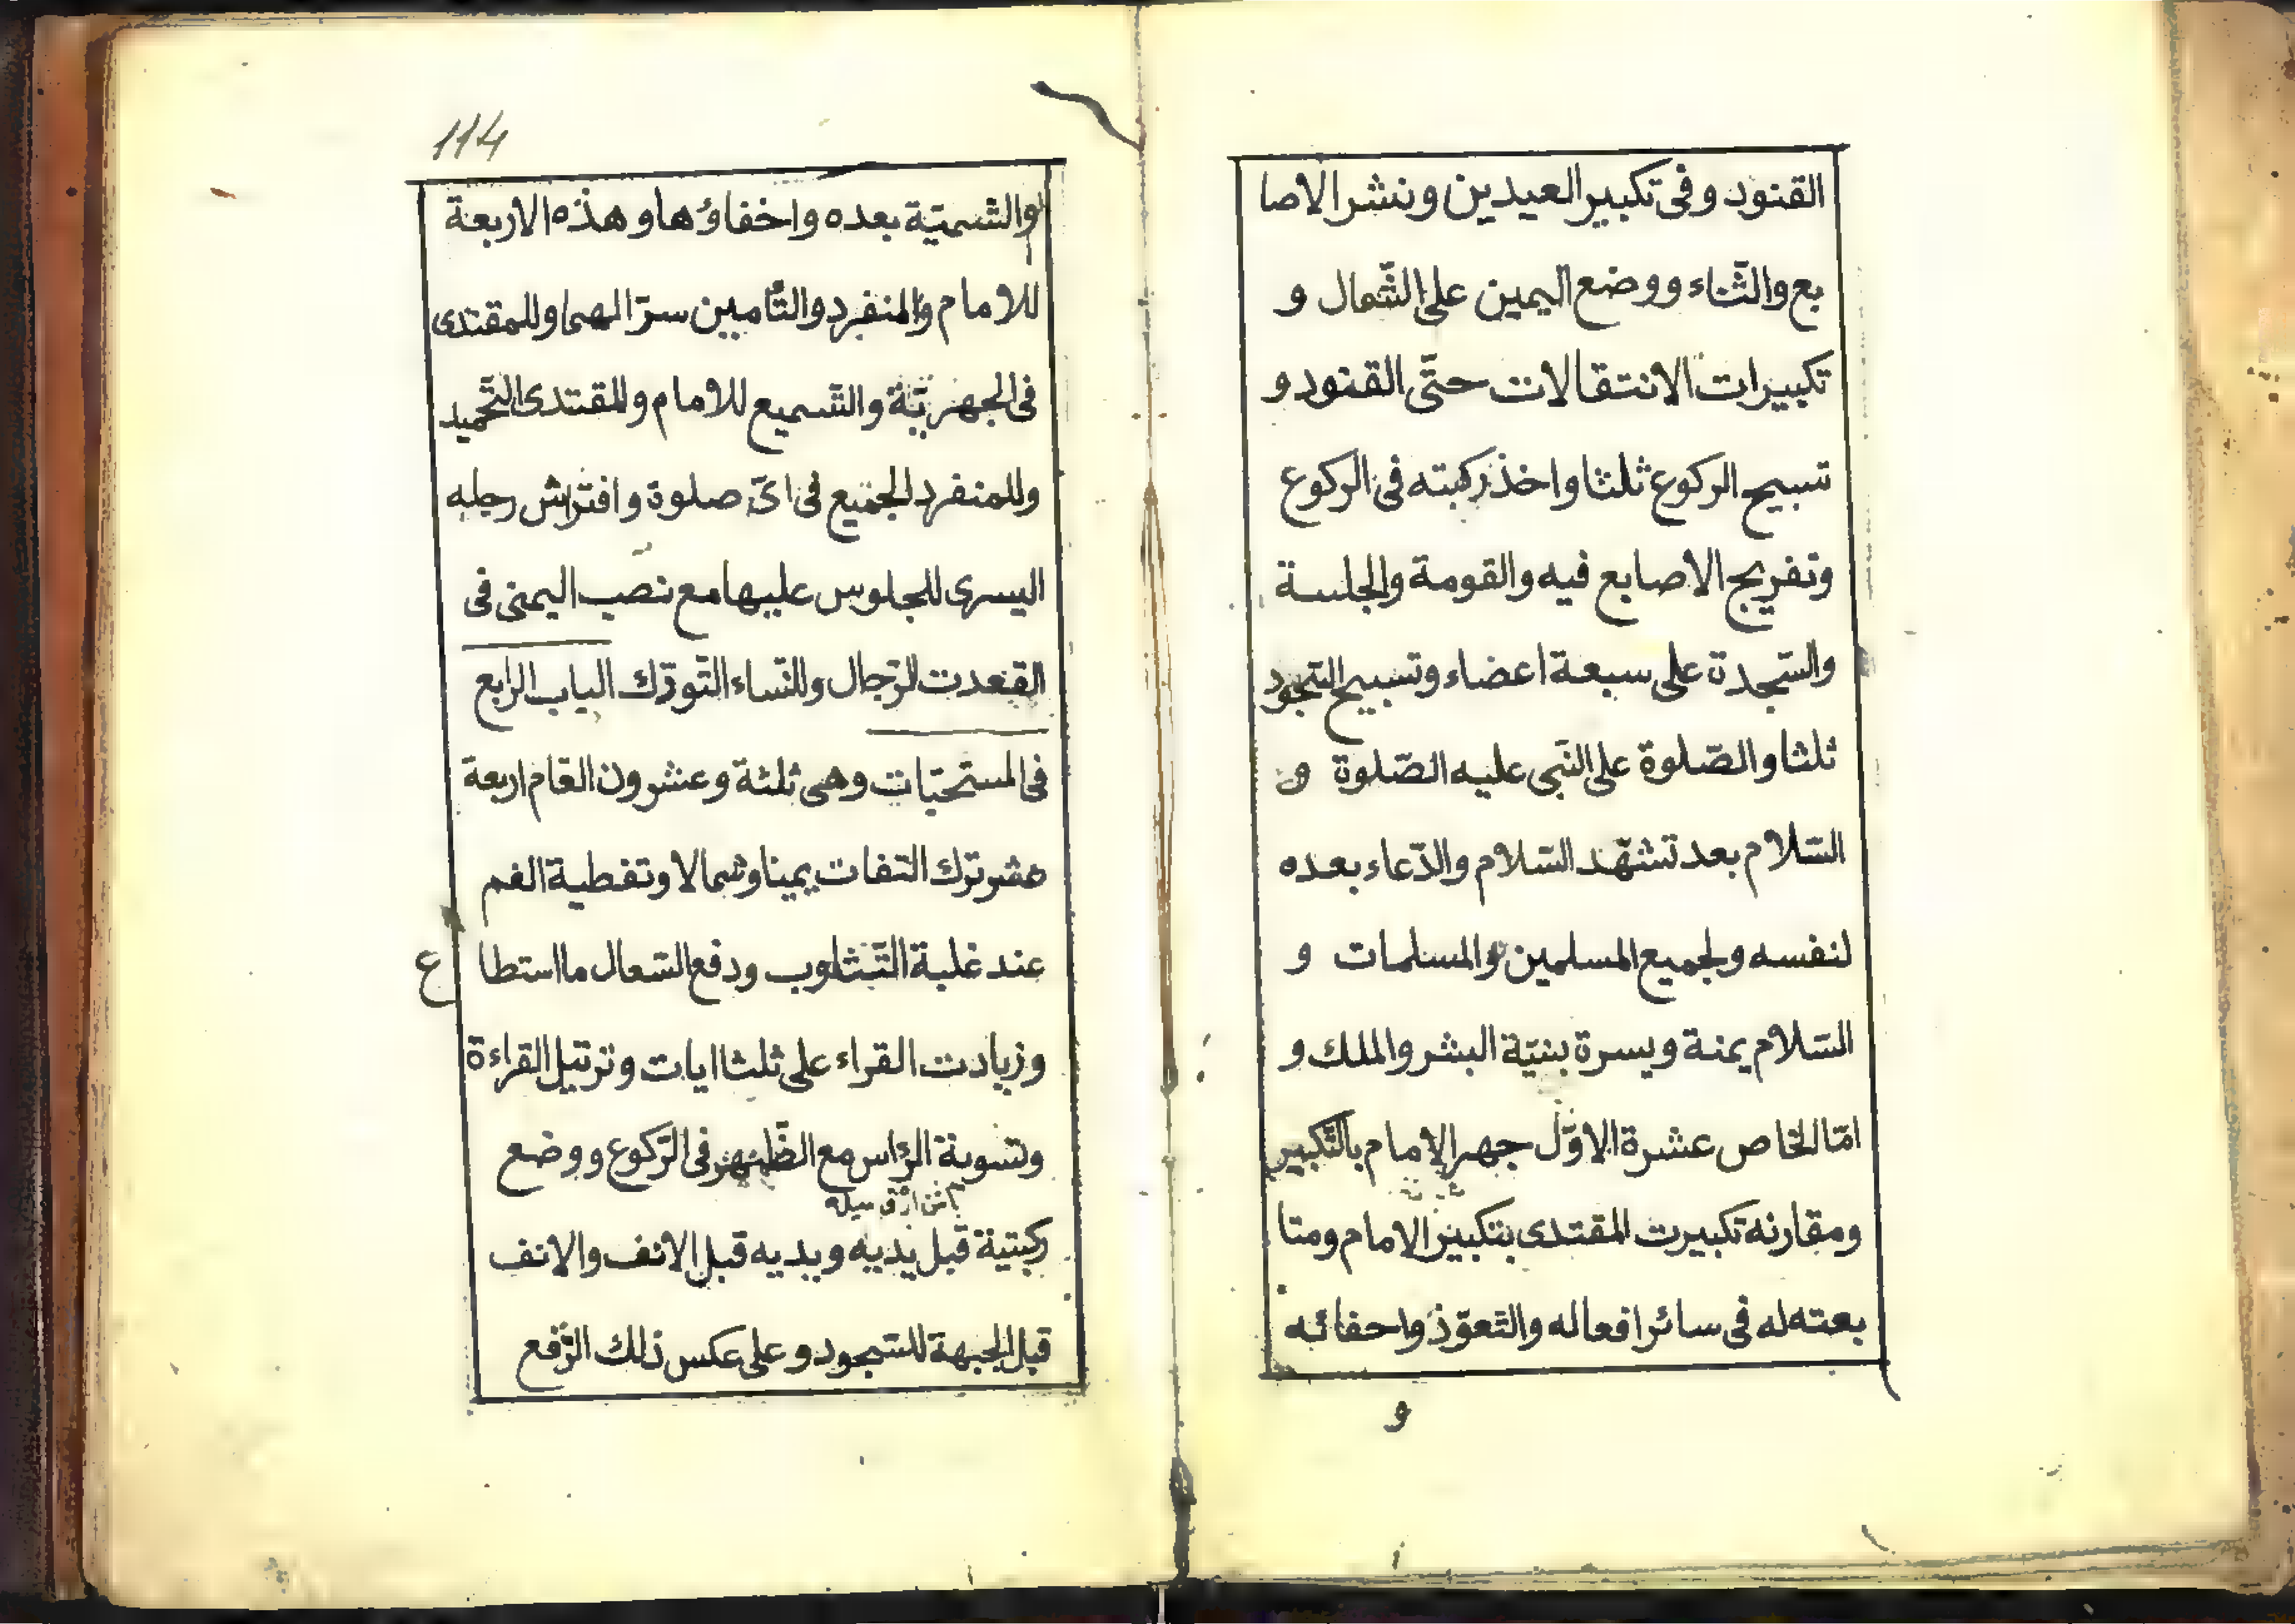 القنود وفى تكبير العيدين ونشر الاصا
بع والثّناء ووضع اليمين على الشّمال و
تكبيرات الانتقالات حتّى القنود و
تسبيح الركوع ثلثا واخذ ركبته فى الركوع
وتفريج الاصابع فيه والقومة والجلسة
والسّجدة على سبعة اعضاء وتسبيح السّجود
ثلثا والصّلوة على النّبى عليه الصّلوة و
السّلام بعد تشهّد السّلام والدّعاء بعده
لنفسه ولجميع المسلمين والمسلمات و
السّلام يمنة ويسرة بنيّة البشر والملك و
امّا الخاص عشرة الاوّل جهر الامام بالتّكبير
ومقارنة تكبيرت المقتدى بتكبير الامام ومتا
بعته له فى سائر افعاله والتّعوّذ واحفائه
و
114
والتّسميّة بعده واخفاؤها وهذه الاربعة
للامام والمنفرد والتّأمين سرّا لهما وللمقتدى
فى الجهريّة والتّسميع للامام وللمقتدى التّحميد
وللمنفرد الجميع فى اىّ صلوة وافتراش رجله
اليسرى للجلوس عليها مع نصب اليمنى فى
القعدت للرّجال وللنّساء التّورّك الباب الرّابع
فى المستحبّات وهى ثلثة وعشرون العام اربعة
عشر ترك التفات يمينا وشمالا وتغطية الفم
عند غلبة التّثاوب ودفع السّعال ما استطا
ع
وزيادت القراء على ثلثا ايات وترتيل القراءة
وتسوية الرّاس مع الظّهر فى الرّكوع ووضع
ركبتية قبل يديه ويديه قبل الانف والانف
قبل الجبهة للسّجود وعلى عكس ذلك الرّفع